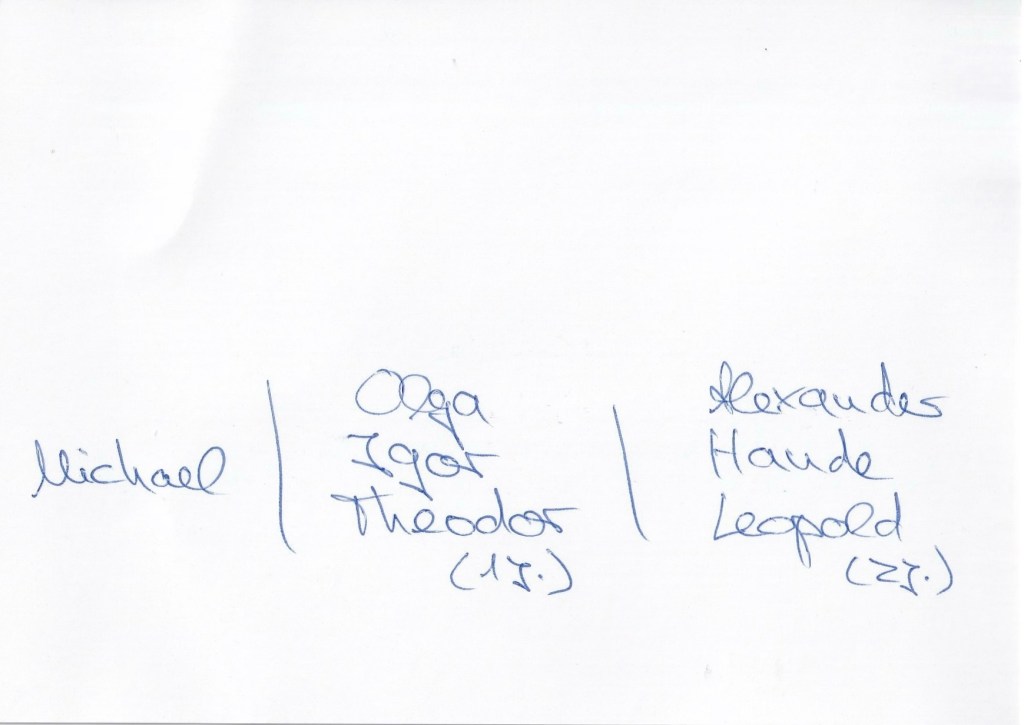 Michael
Olga
Igor
Theodor
(1J.)
Alexander
Haude
Leopold
(2J.)